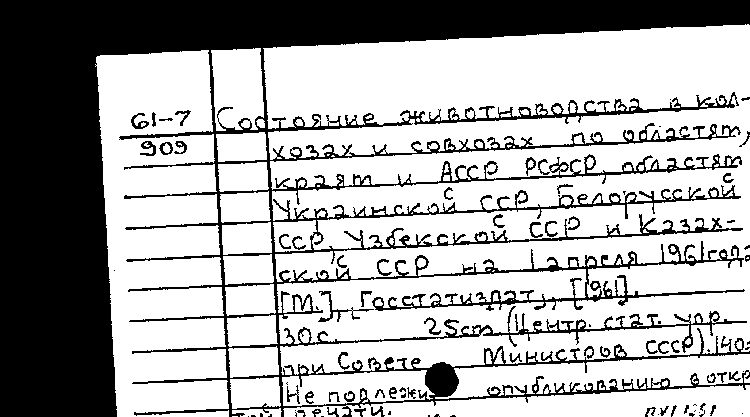 61-7 Состояние животноводства в кол-
909 хозах и совхозах по областям,
краям и АССР РСФСР, областям
Украинской ССР, Белорусской
ССР, Узбекской ССР и Казах-
ской ССР на 1 апреля 1961 года
[М.], Госстатиздат, [1961].
30 с. 25 cm (Центр. стат. упр.
при Совете Министров СССР). 140
Не подлежи опубликованию в откр
той печати.